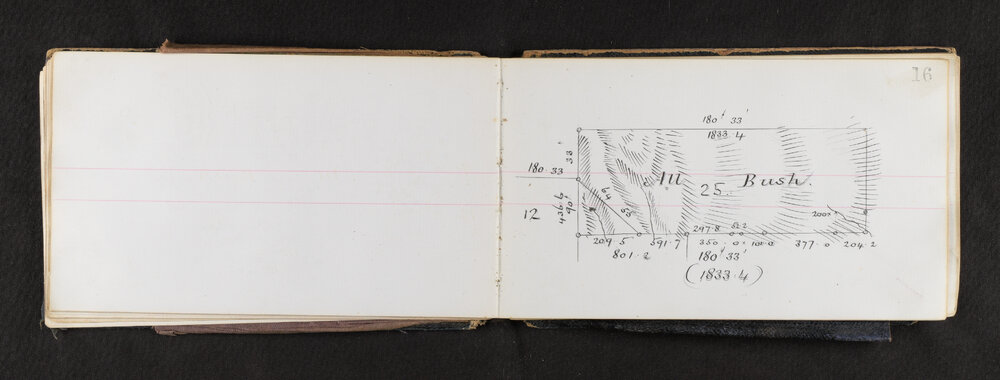 16
180° 33'
1833.4
33
180.33
All Bush.
25
12
436.6
90'
64
53
200×
297.8
52.2
209.5
591.7
350.0
100.0
377.0
204.2
801.2
180° 33'
(1833.4)